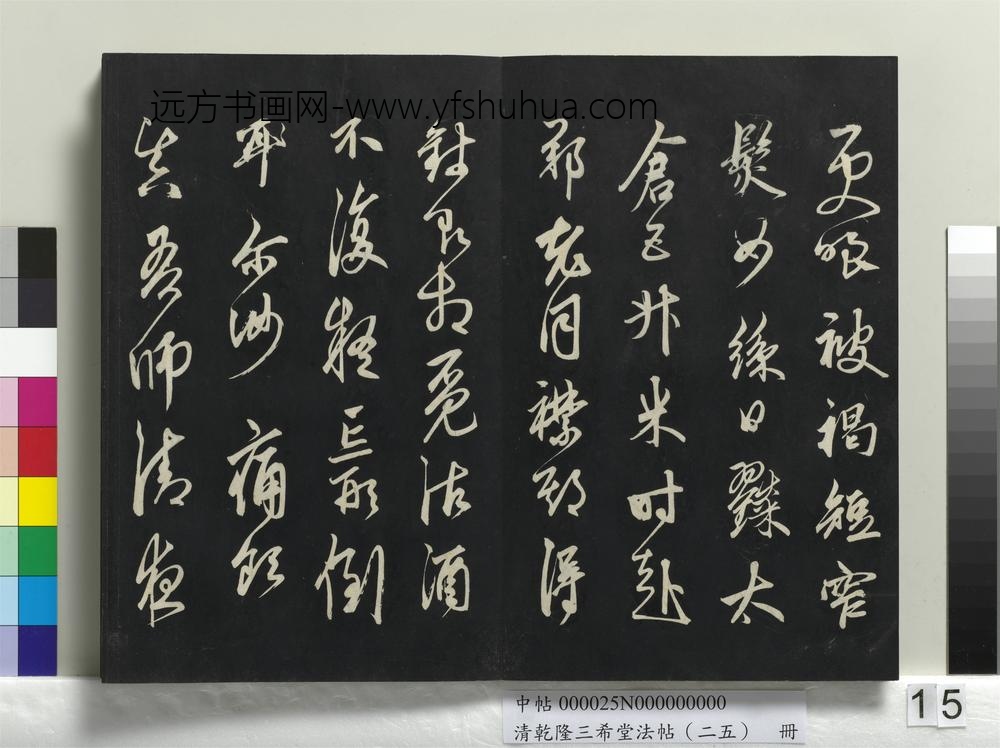 远方书画网-www.yfshuhua.com
更嗤被褐短窄
鬢如絲日糴太
倉五升米時赴
鄭老同襟期得
錢即相覓沽酒
不復疑忘形倒
尔汝痛飲
真吾師清夜
中帖 000025N000000000
清乾隆三希堂法帖（二五） 冊
15